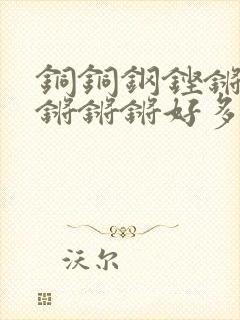 銅銅鋼鏗鏘
鏘鏘鏘好多
沃尔